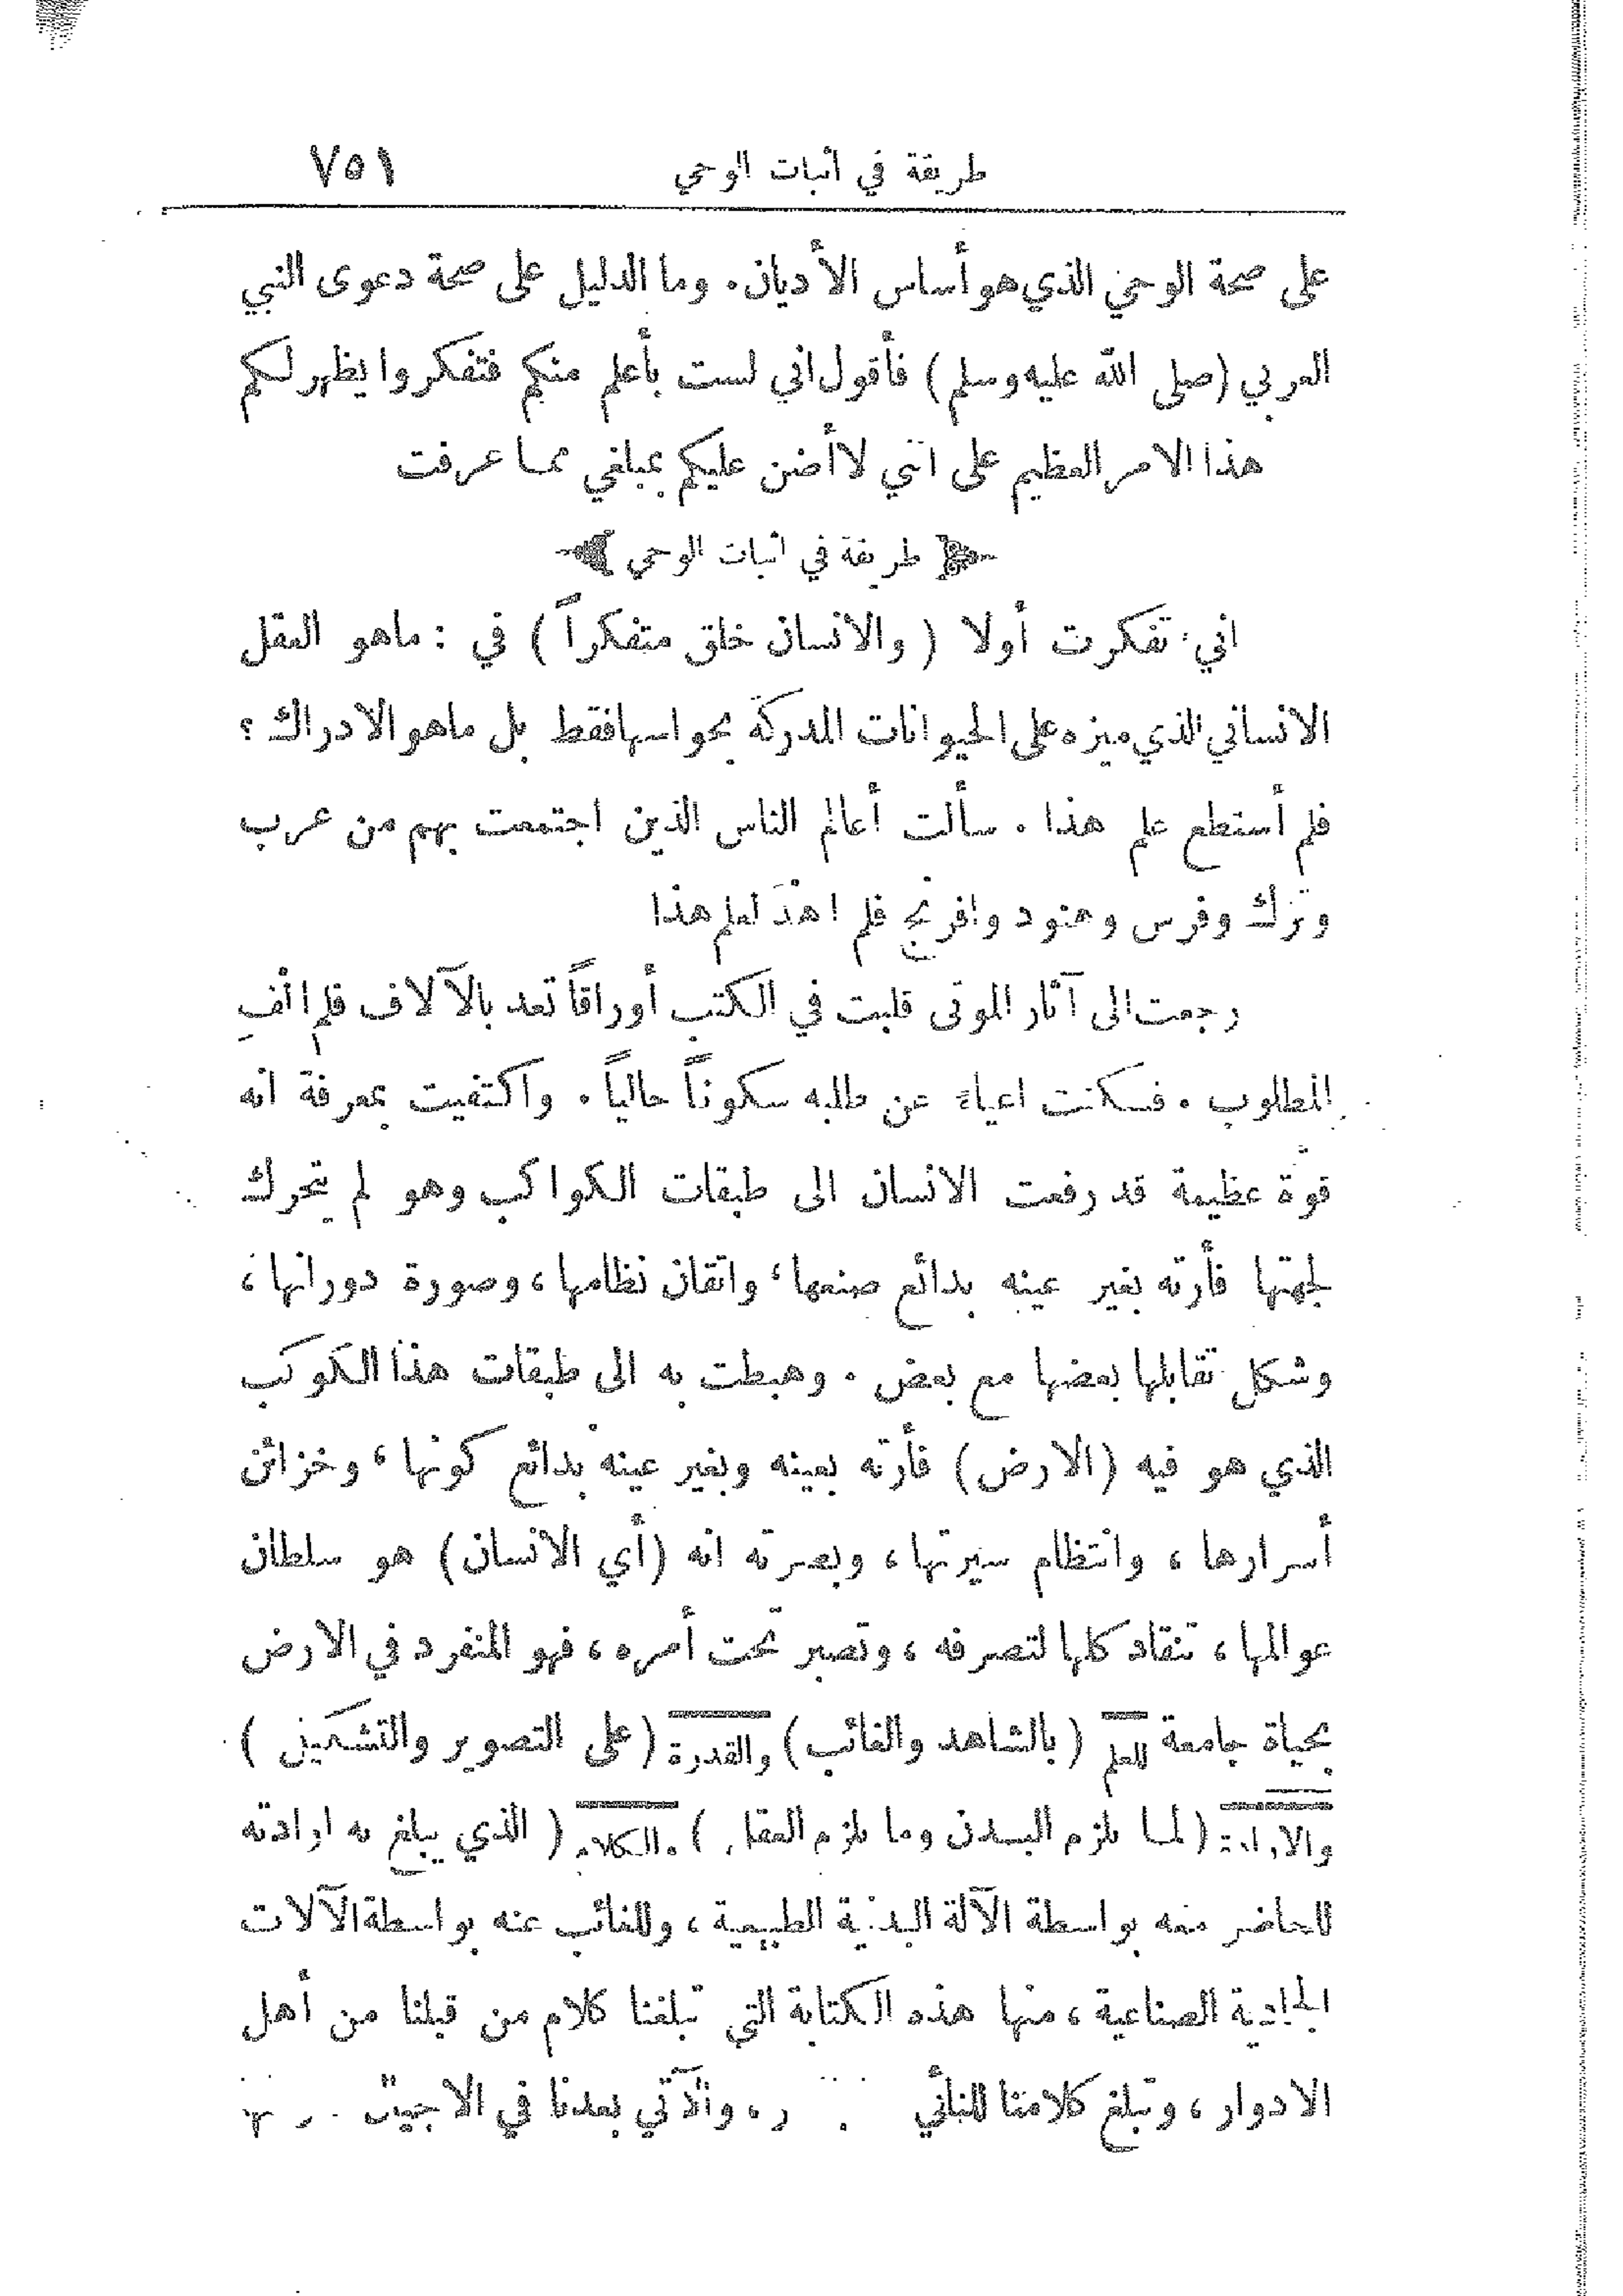 طريقة في اثبات الوحي ٧٥١
على صحة الوحي الذي هو أساس الأديان. وما الدليل على صحة دعوى النبي
العربي (صلى الله عليه وسلم) فأقول اني لست بأعلم منكم فتفكروا يظهر لكم
هذا الامر العظيم على انني لا أضن عليكم بمبلغي مما عرفت
طريقة في اثبات الوحي
اني تفكرت أولا (والانسان خلق متفكراً) في: ماهو العقل
الانساني الذي ميزه على الحيوانات المدركة بحواسها فقط بل ماهو الادراك؟
فلم أستطع علم هذا. سألت أعالم الناس الذين اجتمعت بهم من عرب
وترك وفرس وهنود وافرنج فلم اهدَ لعلم هذا
رجعت الى آثار الموتى قلبت في الكتب أوراقاً تعد بالآلاف فلم الفِ
المطلوب. فسكنت اعياءً عن طلبه سكوناً حالياً. واكتفيت بمعرفة انه
قوة عظيمة قد رفعت الانسان الى طبقات الكواكب وهو لم يتحرك
لجهتها فأرته بغير عينه بدائع صنعها، واتقان نظامها، وصورة دورانها،
وشكل تقابلها بعضها مع بعض. وهبطت به الى طبقات هذا الكوكب
الذي هو فيه (الارض) فأرته بعينه وبغير عينه بدائع كونها، وخزائن
أسرارها، وانتظام سيرتها، وبصرته انه (أي الانسان) هو سلطان
عوالمها، تنقاد كلها لتصرفه، وتصير تحت أمره، فهو المنفرد في الارض
بحياة جامعة للعلم (بالشاهد والغائب) والقدرة (على التصوير والتشكيل)
والارادة (لما يلزم البدن وما يلزم العقل) والكلام (الذي يبلغ به ارادته
للحاضر معه بواسطة الآلة البدنية الطبيعية، وللغائب عنه بواسطة الآلات
الجمادية الصناعية، منها هذه الكتابة التي تبلغنا كلام من قبلنا من أهل
الادوار، وتبلغ كلامنا للنائي والآتي بعدنا في